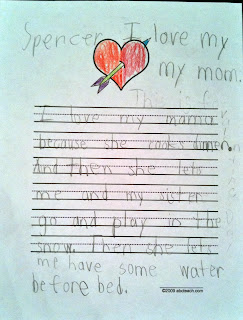 Spencer I love my
my mom.
This is for
I love my mama
because she cooks dinner.
And then she lets
me and my sister
go and play in the
snow. Then she lets
me have some water
before bed.
©2009 abcteach.com